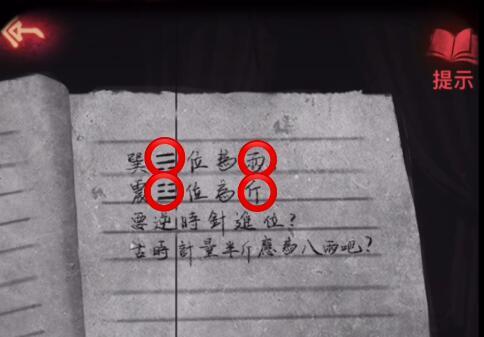 提示
巽☴位為兩
震☳位為斤
要逆時針進位？
古時計量半斤應為八兩吧？